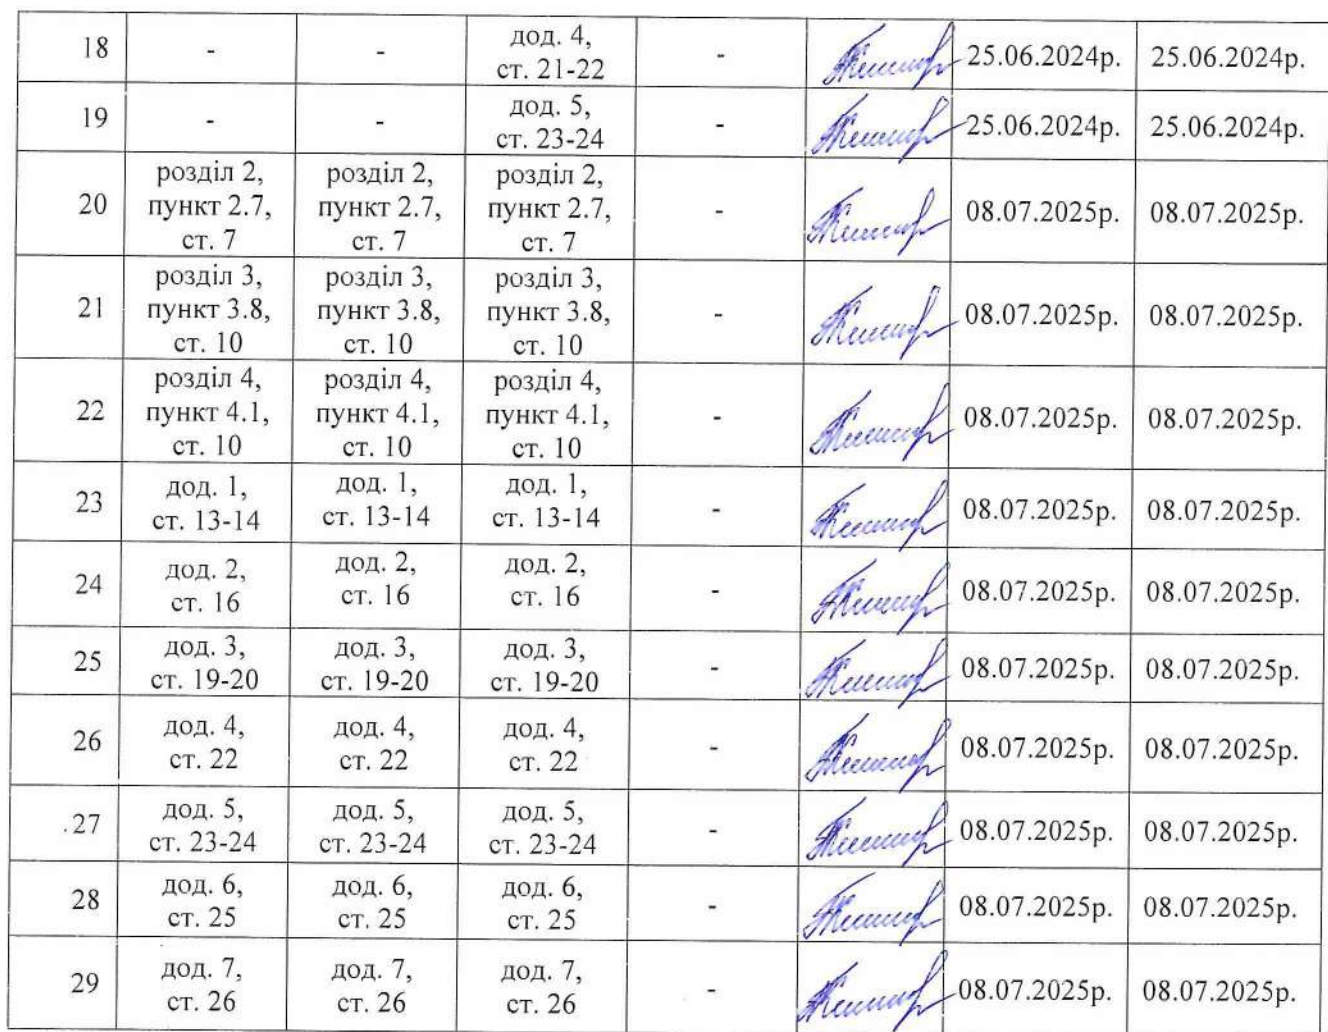 18 - - дод. 4, ст. 21-22 - 25.06.2024р. 25.06.2024р.
19 - - дод. 5, ст. 23-24 - 25.06.2024р. 25.06.2024р.
20 розділ 2, пункт 2.7, ст. 7 розділ 2, пункт 2.7, ст. 7 розділ 2, пункт 2.7, ст. 7 - 08.07.2025р. 08.07.2025р.
21 розділ 3, пункт 3.8, ст. 10 розділ 3, пункт 3.8, ст. 10 розділ 3, пункт 3.8, ст. 10 - 08.07.2025р. 08.07.2025р.
22 розділ 4, пункт 4.1, ст. 10 розділ 4, пункт 4.1, ст. 10 розділ 4, пункт 4.1, ст. 10 - 08.07.2025р. 08.07.2025р.
23 дод. 1, ст. 13-14 дод. 1, ст. 13-14 дод. 1, ст. 13-14 - 08.07.2025р. 08.07.2025р.
24 дод. 2, ст. 16 дод. 2, ст. 16 дод. 2, ст. 16 - 08.07.2025р. 08.07.2025р.
25 дод. 3, ст. 19-20 дод. 3, ст. 19-20 дод. 3, ст. 19-20 - 08.07.2025р. 08.07.2025р.
26 дод. 4, ст. 22 дод. 4, ст. 22 дод. 4, ст. 22 - 08.07.2025р. 08.07.2025р.
27 дод. 5, ст. 23-24 дод. 5, ст. 23-24 дод. 5, ст. 23-24 - 08.07.2025р. 08.07.2025р.
28 дод. 6, ст. 25 дод. 6, ст. 25 дод. 6, ст. 25 - 08.07.2025р. 08.07.2025р.
29 дод. 7, ст. 26 дод. 7, ст. 26 дод. 7, ст. 26 - 08.07.2025р. 08.07.2025р.